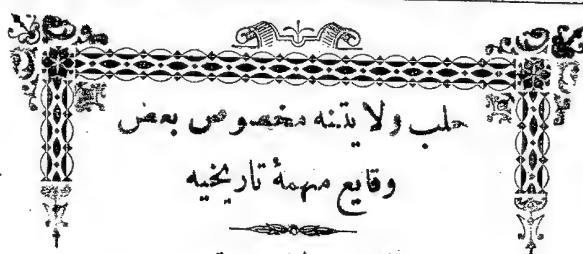 حلب ولايتنه مخصوص بعض
وقايع مهمهٔ تاريخيه